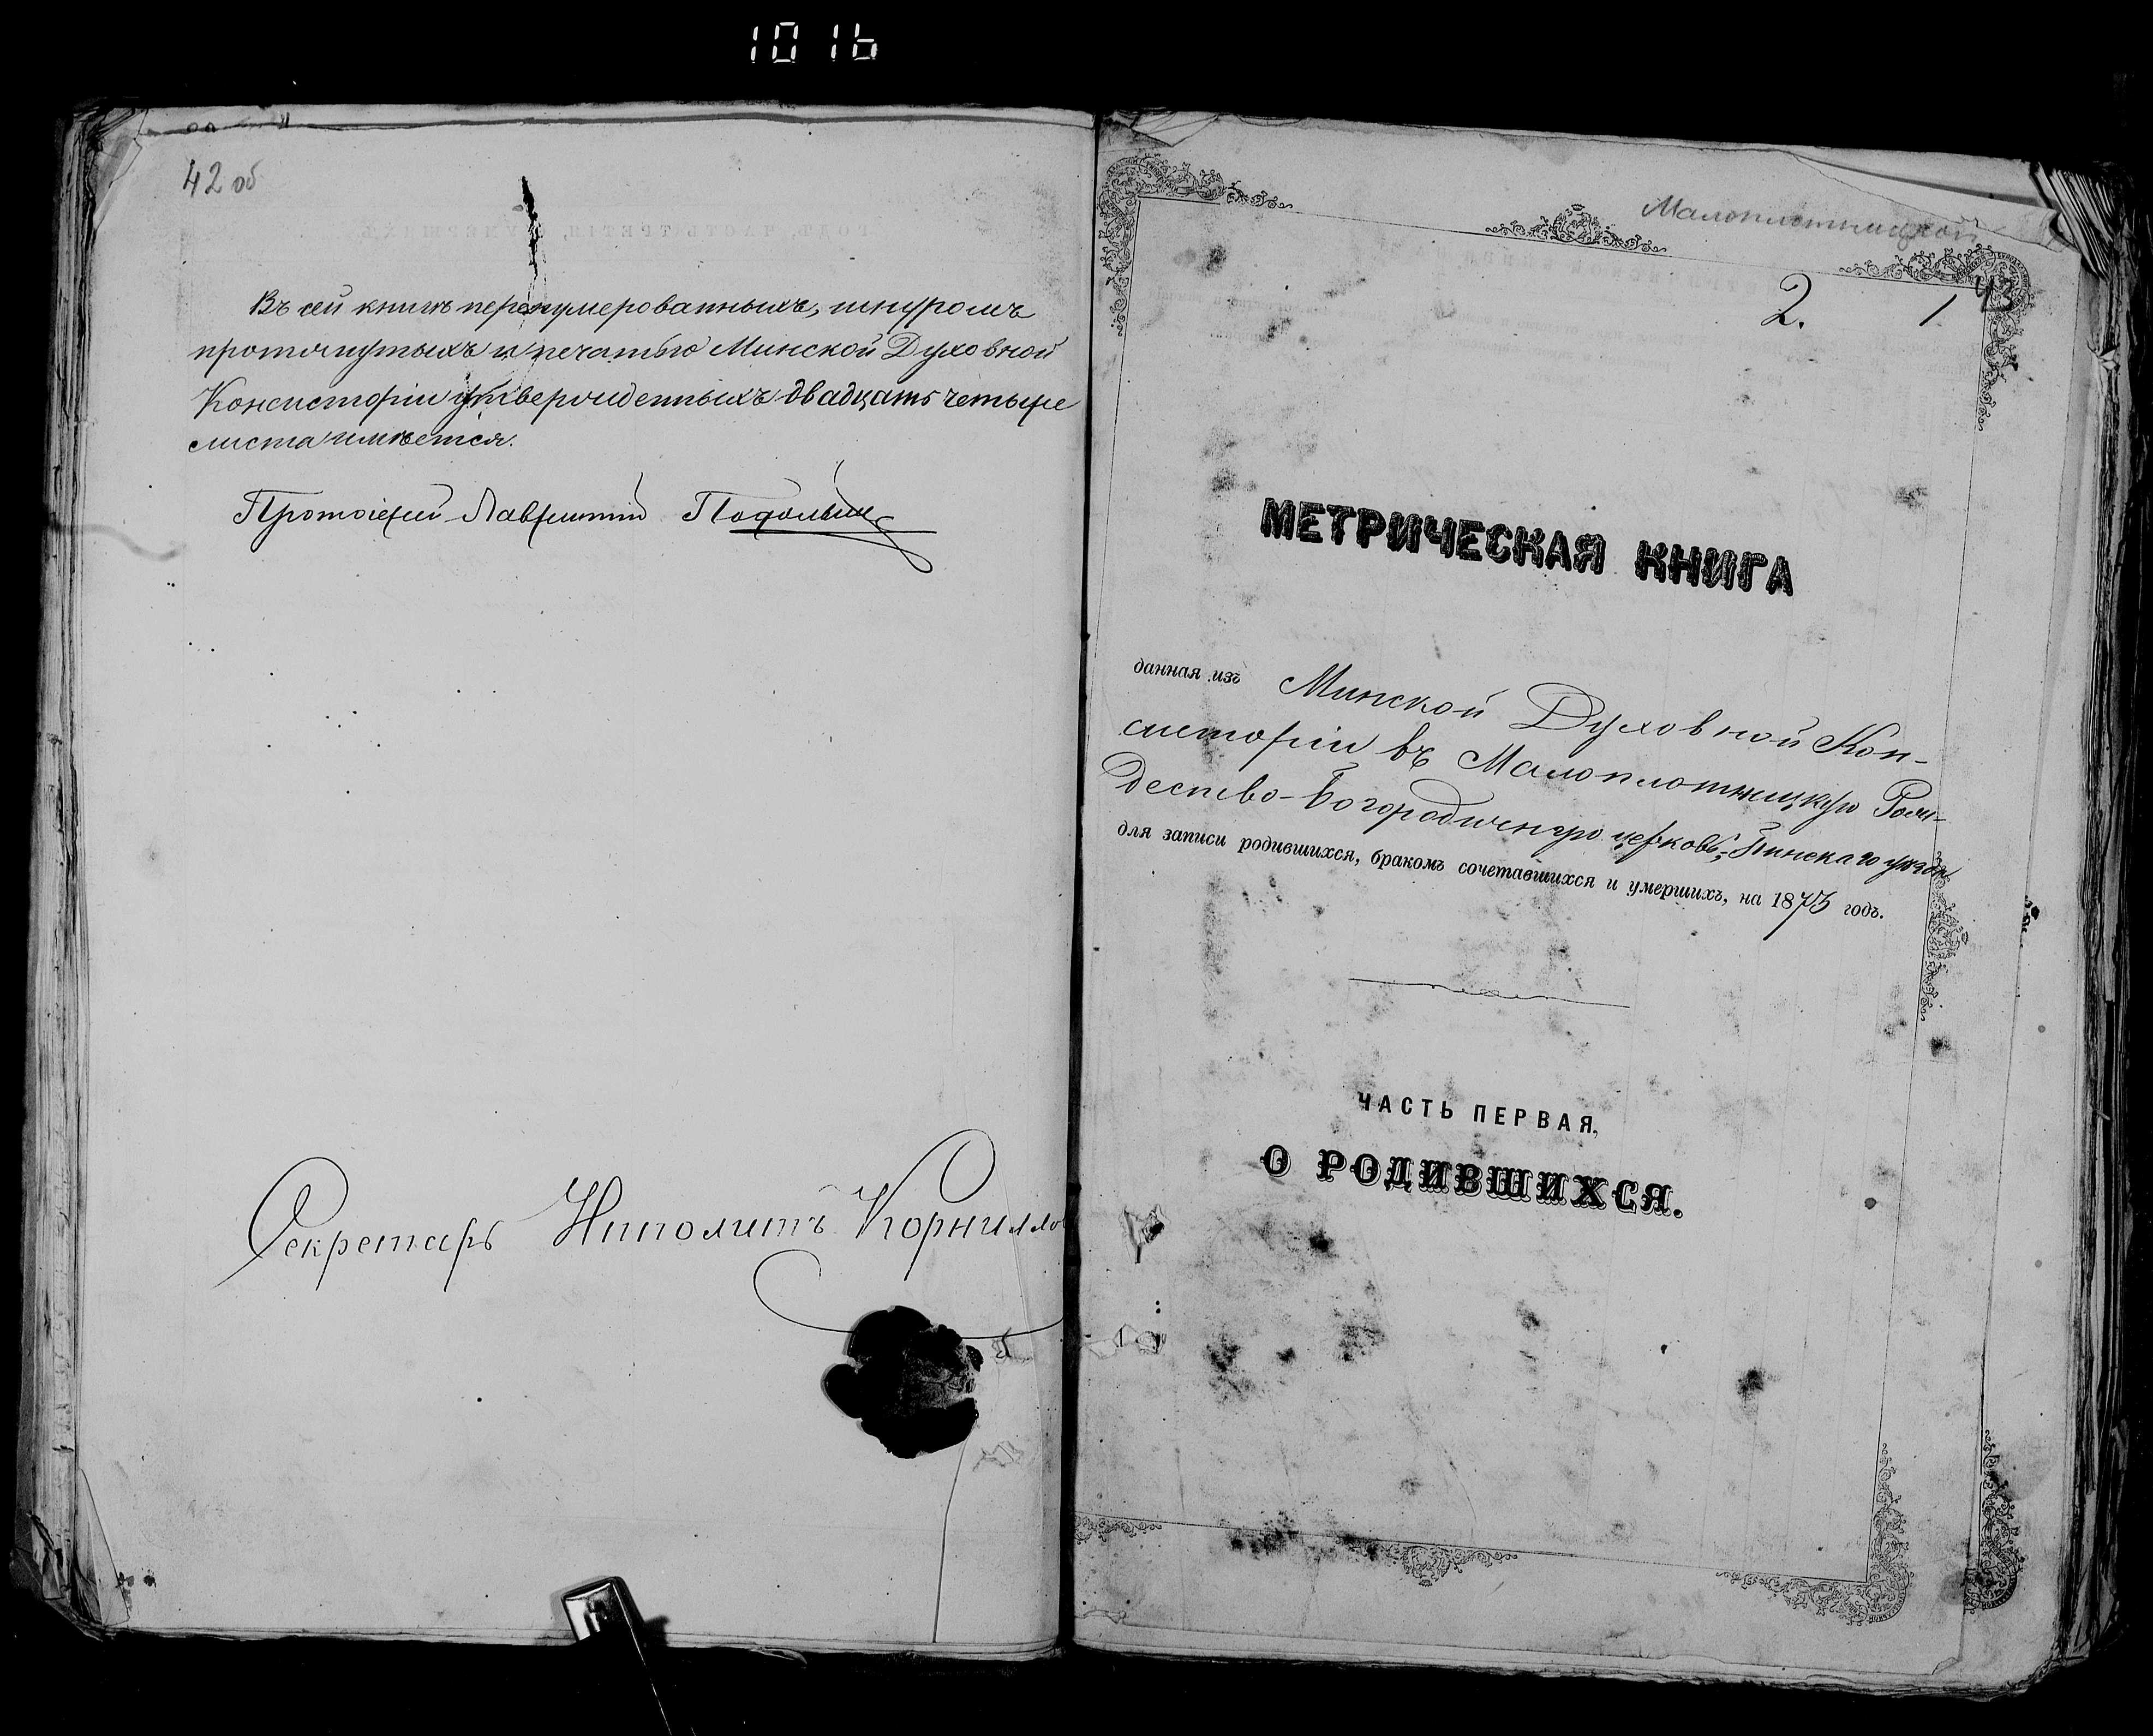 1016
42 об
Въ сей книгѣ перенумерованныхъ, шнуромъ
протянутыхъ и печатью Минской Духовной
Консисторіи утвержденныхъ двадцать четыре
листа имѣется.
Протоіерей Лаврентій
Секретарь Ипполитъ Корнилло
Малоплотницкой
2. 1 43
МЕТРИЧЕСКАЯ КНИГА
данная изъ Минской Духовной Кон-
систоріи въ Малоплотницкую Рож-
дество-Богородичную церковь, Пинскаго уѣзда
для записи родившихся, бракомъ сочетавшихся и умершихъ, на 1875 годъ.
ЧАСТЬ ПЕРВАЯ,
О РОДИВШИХСЯ.